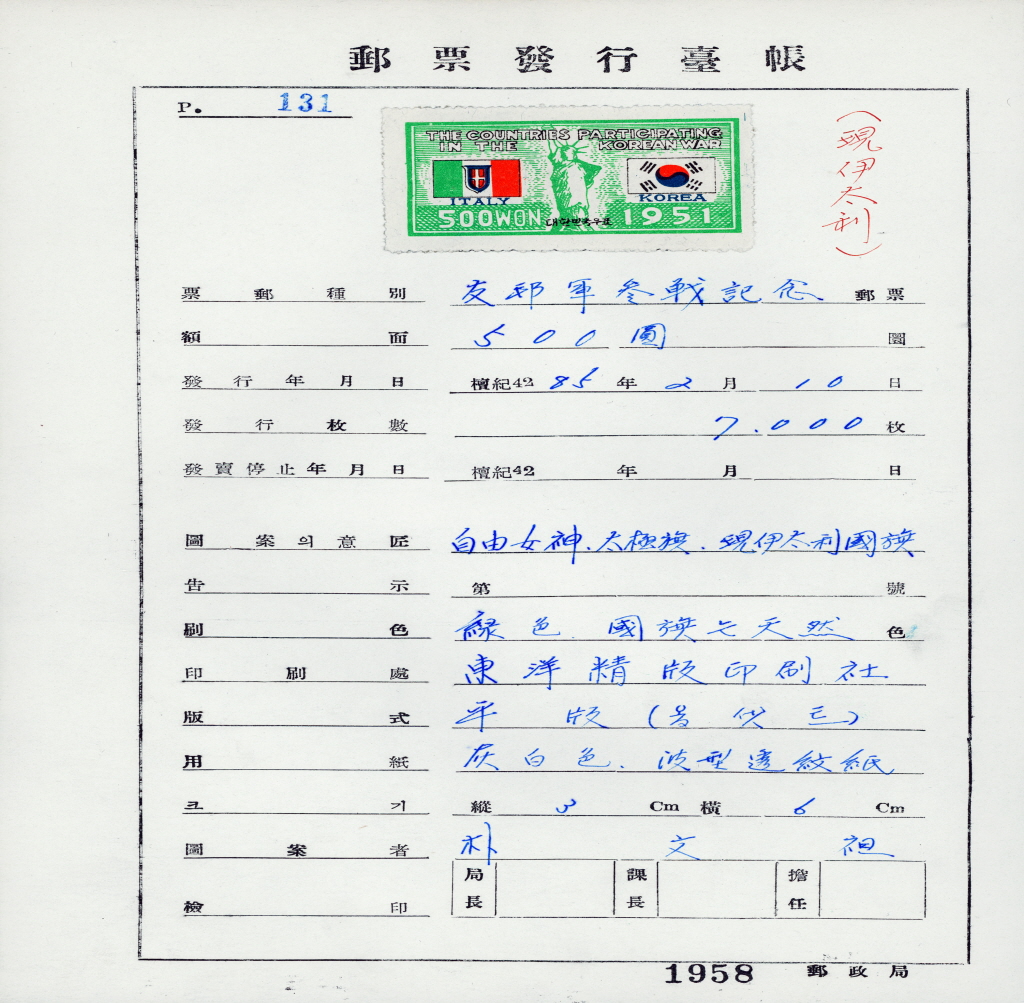 郵票發行臺帳
P. 131
THE COUNTRIES PARTICIPATING
IN THE KOREAN WAR
ITALY KOREA
500WON 1951
(現伊太利)
票郵種別 友邦軍參戰記念 郵票
額面 500圓 圜
發行年月日 檀紀4285年2月10日
發行枚數 7.000枚
發賣停止年月日 檀紀42 年 月 日
圖案의意匠 自由女神、太極旗、現伊太利國旗
告示 第 號
刷色 綠色、國旗는天然色
印刷處 東洋精版印刷社
版式 平版(옵셋트)
用紙 灰白色、波型透紋紙
크기 縱 3 Cm 橫 6 Cm
圖案者 朴文祖
檢印 局長 課長 擔任
1958 郵政局